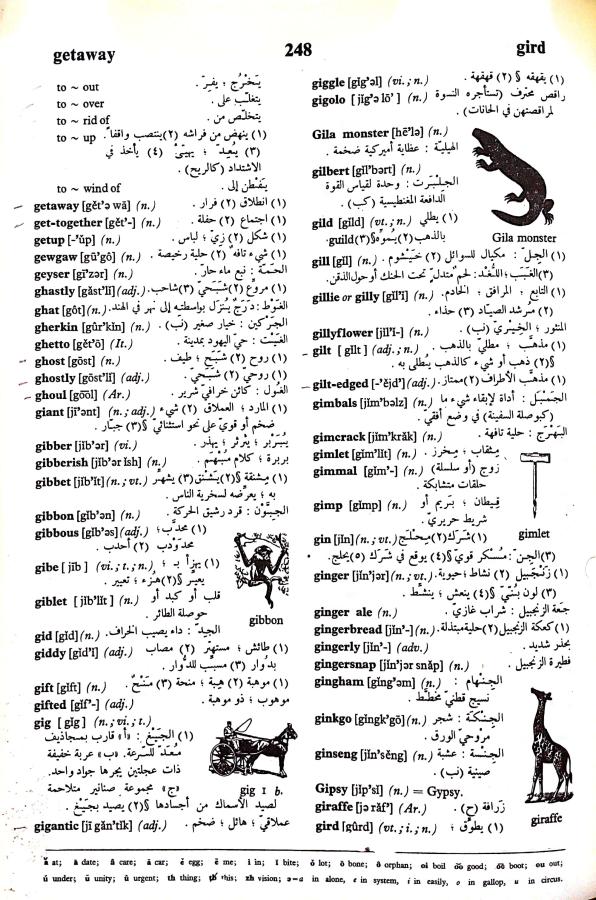 getaway 248 gird
to ~ out يَخْرُج ؛ يفرّ .
to ~ over يتغلّب على .
to ~ rid of يتخلّص من .
to ~ up (١) ينهض من فراشه (٢) ينتصب واقفاً
(٣) يُعِيد ؛ يهيّئ (٤) يأخذ في
الاشتداد (كالريح) .
to ~ wind of يَفْطن إلى .
getaway [gĕt'ə wā] (n.) (١) انطلاق (٢) فرار .
get-together [gĕt'-] (n.) (١) اجتماع (٢) حفلة .
getup [-'ŭp] (n.) (١) شكل (٢) زيّ ؛ لباس .
gewgaw [gū'gô] (n.) (١) شيء تافه (٢) حلية رخيصة .
geyser [gī'zər] (n.) الحَمّة : نبع ماء حارّ .
ghastly [găst'lĭ] (adj.) (١) مروّع (٢) شَبَحيّ (٣) شاحب .
ghat [gôt] (n.) الغَوْط : دَرَجٌ يُنزَل بواسطته إلى نهر في الهند .
gherkin [gûr'kĭn] (n.) الجَرْكين : خيار صغير (نب) .
ghetto [gĕt'ō] (It.) الغيت : حيّ اليهود بمدينة .
ghost [gōst] (n.) (١) روح (٢) شَبَح ؛ طيف .
ghostly [gōst'lĭ] (adj.) (١) روحيّ (٢) شبحيّ .
ghoul [gōōl] (Ar.) الغُول : كائن خرافيّ شرير .
giant [jī'ənt] (n. ; adj.) (١) المارد ؛ العملاق (٢) شيء
ضخم أو قويّ على نحو استثنائيّ §(٣) جبّار .
gibber [jĭb'ər] (vi.) يُبَرْبر ؛ يثرثر ؛ يهذر .
gibberish [jĭb'ər ĭsh] (n.) بربرة ؛ كلام مُبهَم .
gibbet [jĭb'ĭt] (n. ; vt.) (١) مِشنقة §(٢) يَشنق (٣) يشهّر
به ؛ يعرّضه لسخرية الناس .
gibbon [gĭb'ən] (n.) الجِبّون : قرد رشيق الحركة .
gibbous [gĭb'əs] (adj.) (١) محدّب ؛
محدَودب (٢) أحدب .
gibe [jīb] (vi. ; t. ; n.) (١) يهزأ بـ ؛
يعيّر §(٢) هزء ؛ تعيير .
giblet [jĭb'lĭt] (n.) قلب أو كبد أو
حوصلة الطائر .
gibbon
gid [gĭd] (n.) الجيد : داء يصيب الخراف .
giddy [gĭd'ĭ] (adj.) (١) طائش ؛ مستهتر (٢) مصاب
بدُوار (٣) مسبّب للدُّوار .
gift [gĭft] (n.) (١) موهبة (٢) هِبة ؛ منحة (٣) مَنْح .
gifted [gĭf'-] (adj.) موهوب ؛ ذو موهبة .
gig [gĭg] (n. ; vi. ; t.)
(١) الجَيْغ : «أ» قارب بمجاذيف
مُعَدّ للسّرعة. «ب» عربة خفيفة
ذات عجلتين يجرها جواد واحد.
«ج» مجموعة صنانير متلاحمة
gig 1 b.
لصيد الأسماك من أجسادها §(٢) يصيد بجَيْغ .
gigantic [jī găn'tĭk] (adj.) عملاقيّ ؛ هائل ؛ ضخم .
giggle [gĭg'əl] (vi. ; n.) (١) يقهقه §(٢) قهقهة .
gigolo [jĭg'ə lō'] (n.) راقص محترف (تستأجره النسوة
لمراقصتهن في الحانات) .
Gila monster [hē'lə] (n.)
الهيليّة : عظاية أميركية ضخمة .
gilbert [gĭl'bərt] (n.)
الجِلْبَرت : وحدة لقياس القوة
الدافعة المغنطيسية (كب) .
gild [gĭld] (vt. ; n.) (١) يطلي
بالذهب (٢) يُموّه §(٣) guild.
Gila monster
gill [gĭl] (n.) (١) الجِلّ : مكيال للسوائل (٢) خَيْشوم .
(٣) الغَبَب ؛ اللُّغْد : لحم متدلٍّ تحت الحنك أو حول الذقن.
gillie or gilly [gĭl'ĭ] (n.) (١) التابع ، المرافق ، الخادم .
(٢) مُرشد الصيّاد (٣) حذاء .
gillyflower [jĭl'ĭ-] (n.) المنثور ؛ الخِيريّ (نب) .
gilt [gĭlt] (adj. ; n.) (١) مذهّب ؛ مطليّ بالذهب .
§(٢) ذهب أو شيء كالذهب يُطلى به .
gilt-edged [-'ĕjd'] (adj.) (١) مذهّب الأطراف (٢) ممتاز .
gimbals [jĭm'bəlz] (n.) الجَمْبَل : أداة لإبقاء شيء ما
(كبوصلة السفينة) في وضع أفقي .
gimcrack [jĭm'krăk] (n.) البَهْرَج : حلية تافهة .
gimlet [gĭm'lĭt] (n.) مِثقاب ؛ مِخرز .
gimmal [gĭm'-] (n.) زوج (أو سلسلة)
حلقات متشابكة .
gimp [gĭmp] (n.) قِيطان ؛ بَريم أو
شريط حريري .
gimlet
gin [jĭn] (n. ; vt.) (١) شَرَك (٢) مِحْلَج
(٣) الجِن : مُسْكر قوي §(٤) يوقع في شرك (٥) يحلج .
ginger [jĭn'jər] (n. ; vt.) (١) زَنْجَبيل (٢) نشاط ؛ حيوية .
(٣) لون بُنّيّ §(٤) ينعش ؛ ينشّط .
ginger ale (n.) جِعَة الزنجبيل : شراب غازيّ .
gingerbread [jĭn'-] (n.) (١) كعكة الزنجبيل (٢) حلية مبتذلة .
gingerly [jĭn'-] (adv.) بحذر شديد .
gingersnap [jĭn'jər snăp] (n.) فطيرة الزنجبيل .
gingham [gĭng'əm] (n.) الجِنْهام :
نسيج قطنيّ مخطّط .
ginkgo [gĭngk'gō] (n.) الجِنكة : شجر
مروَحيّ الورق .
ginseng [jĭn'sĕng] (n.) الجِنْسة : عشبة
صينية (نب) .
Gipsy [jĭp'sĭ] (n.) = Gypsy.
giraffe [jə răf'] (Ar.) زَرافة (ح) .
gird [gûrd] (vt. ; i. ; n.) (١) يطوّق ؛
giraffe
ă at; ā date; â care; ä car; ĕ egg; ē me; ĭ in; ī bite; ŏ lot; ō bone; ô orphan; oi boil ŏŏ good; ōō boot; ou out;
ŭ under; ū unity; û urgent; th thing; th this; zh vision; ə=a in alone, e in system, i in easily, o in gallop, u in circus.